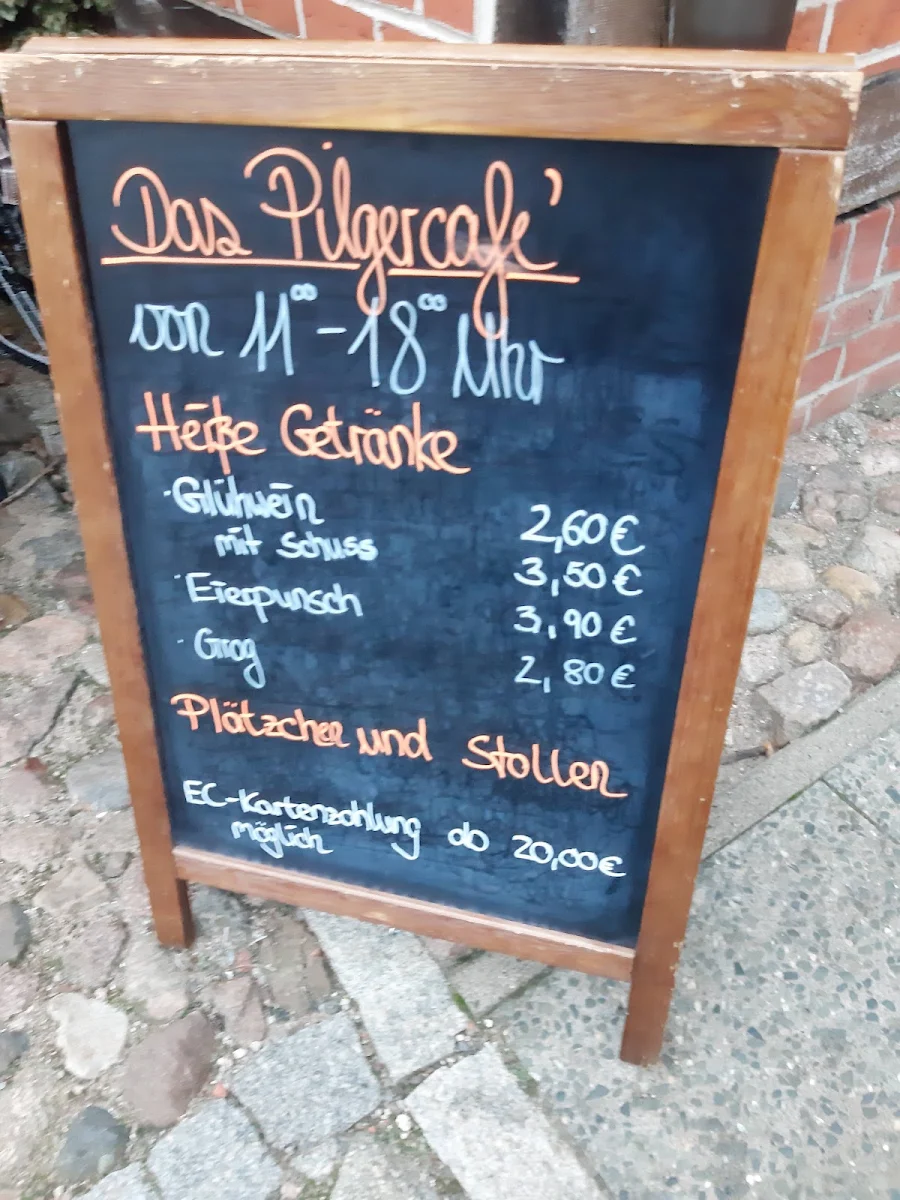 Das Pilgercafé
von 11⁰⁰-18⁰⁰ Uhr
Heiße Getränke
·Glühwein 2,60€
mit Schuss 3,50€
·Eierpunsch 3,90€
·Grog 2,80€
Plätzchen und Stollen
EC-Kartenzahlung ab 20,00€
möglich